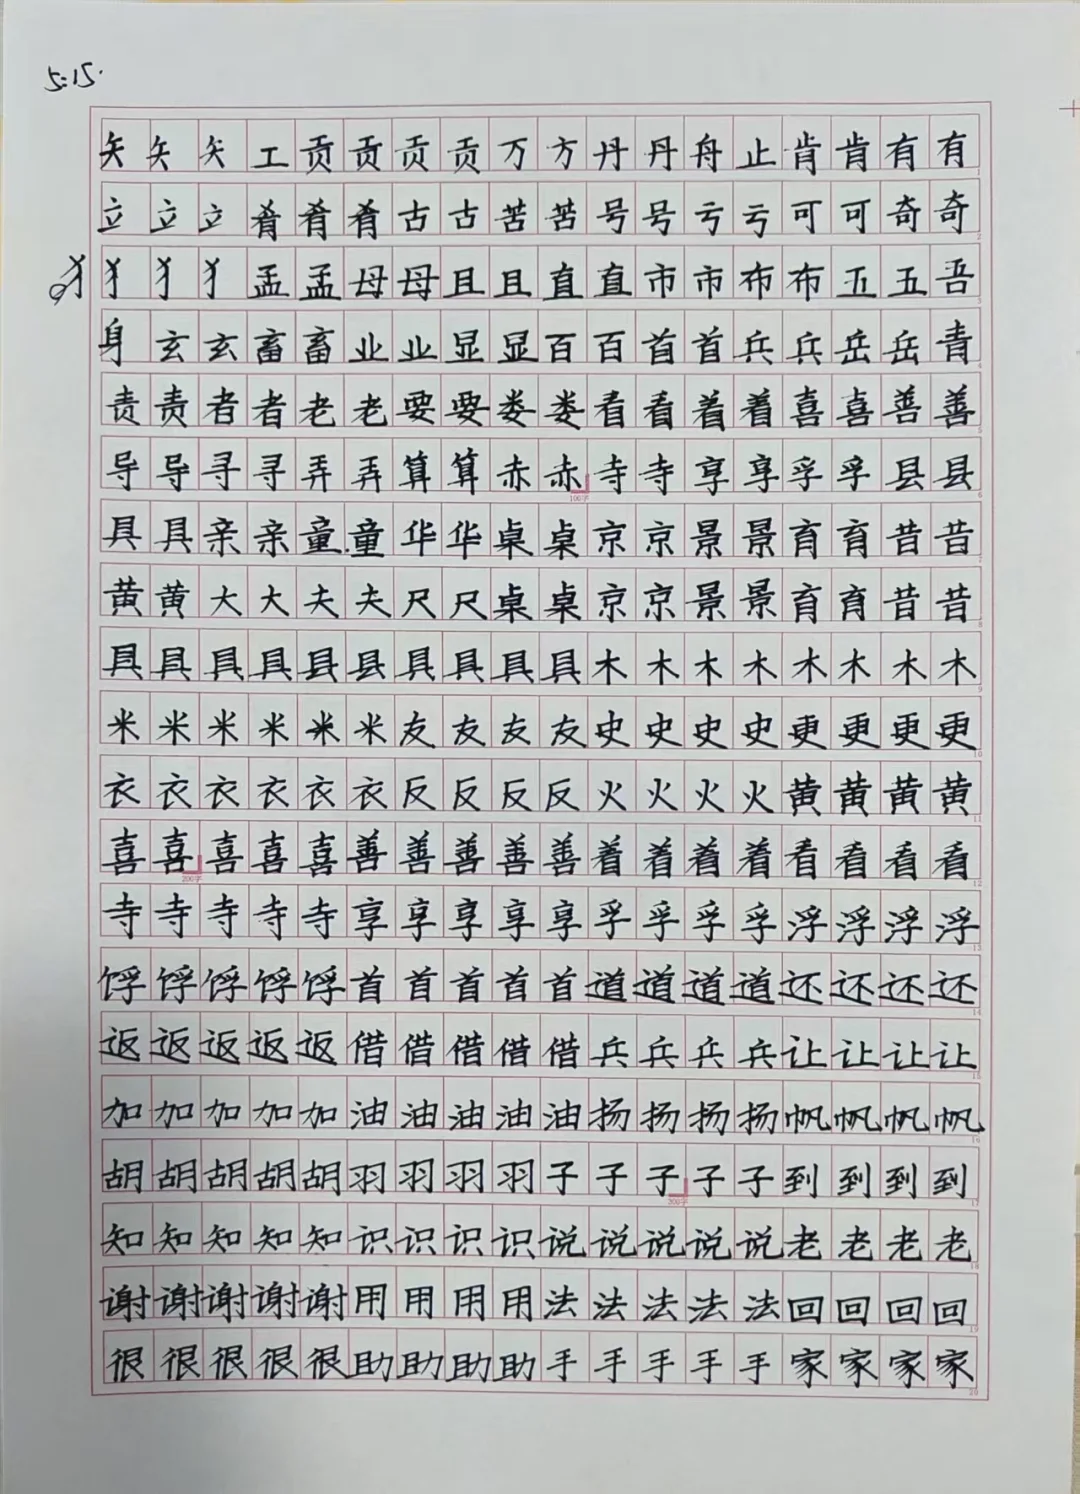 5.15.
矢矢矢工贡贡贡贡万方丹丹舟止肯肯有有
立立立肴肴肴古古苦苦号号亏亏可可奇奇
犭犭犭犭孟孟母母且且直直市市布布五五吾
身玄玄畜畜业业显显百百首首兵兵岳岳青
责责者者老老要要娄娄看看着着喜喜善善
导导寻寻弄弄算算赤赤寺寺享享孚孚县县
具具亲亲童童华华桌桌京京景景育育昔昔
黄黄大大夫夫尺尺桌桌京京景景育育昔昔
具具具具县县具具具具木木木木木木木木
米米米米米米友友友友史史史史更更更更
衣衣衣衣衣衣反反反反火火火火黄黄黄黄
喜喜喜喜喜善善善善善着着着着看看看看
寺寺寺寺寺享享享享享孚孚孚孚浮浮浮浮
馋馋馋馋馋首首首首首道道道道还还还还
返返返返返借借借借借兵兵兵兵让让让让
加加加加加油油油油油扬扬扬扬帆帆帆帆
胡胡胡胡胡羽羽羽羽子子子子子到到到到
知知知知知识识识识说说说说说老老老老
谢谢谢谢谢用用用用法法法法法回回回回
很很很很很助助助助手手手手手家家家家